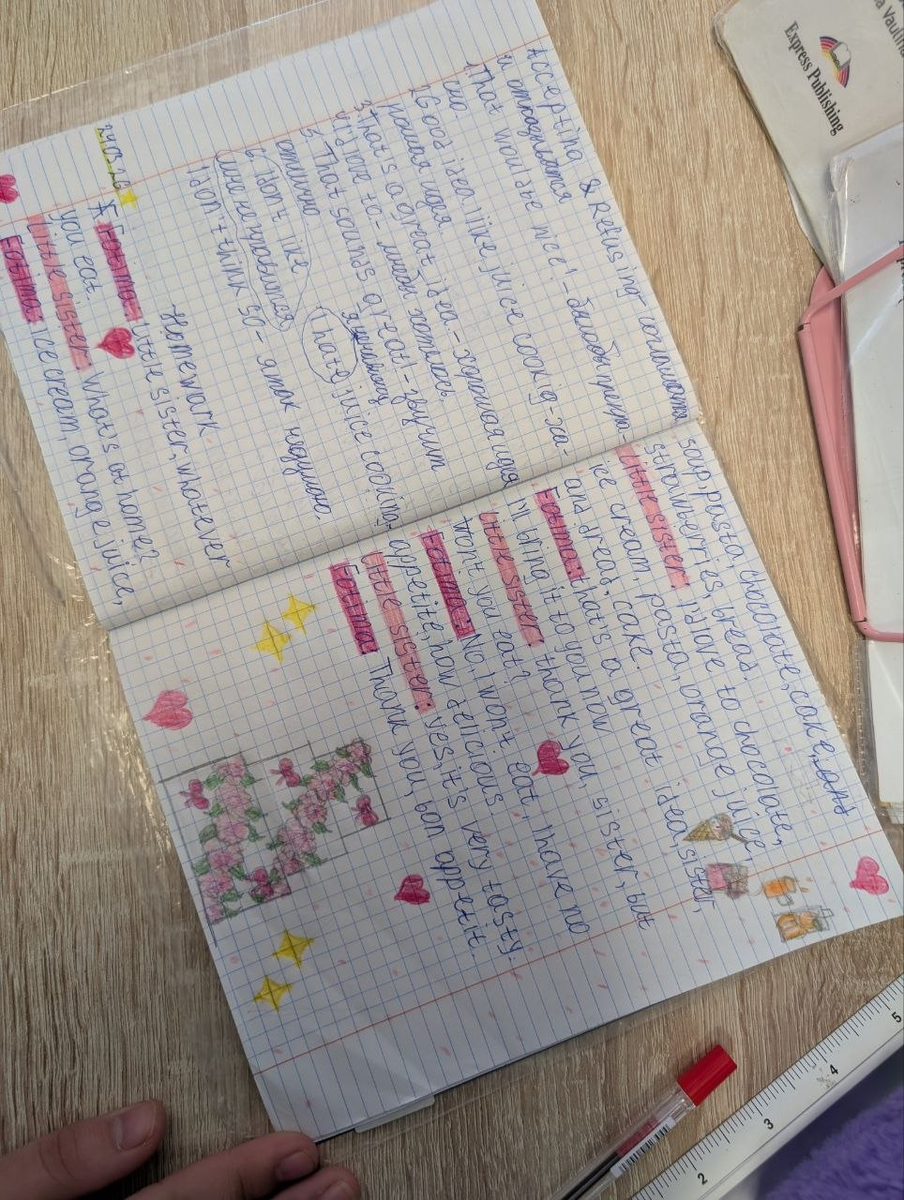 Accepting & Refusing соглашаться
и отказываться
1 That would be nice! - было бы прекра-
сно.
2 Good idea I like juice cookig - хо-
рошая идея.
3 that's a great idea - хорошая идея
4 I'd love to - мне бы хотелось.
5 That sounds great! - звучит
отлично
I hate juice cooking
я ненавижу
6 I don't like
мне не нравится
I don't think so - я так не думаю.
Homework.
24.03.26
Fatima: Little sister, whatever
you eat.
little sister: What's at home?
Fatima: ice cream, orange juice,
soup, pasta, chocolate, cake, and
strawberries, bread.
little sister: I'd love to chocolate,
ice cream, pasta, orange juice,
and bread, cake.
Fatima: that's a great idea, sister,
I'll bring it to you now
little sister: thank you, sister, but
won't you eat?
Fatima: No, I won't eat, I have no
appetite, how delicious.
little sister: yes, it's very tasty.
Fatima: Thank you, bon appetit.
Express Publishing
5
4
3
2